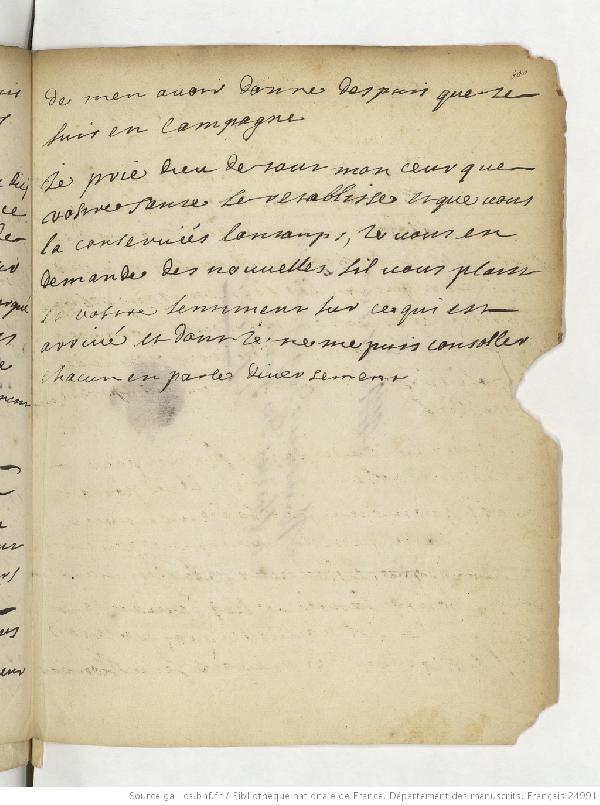 de men avoir donne despuis que ie
suis en Campagne
Ie prie dieu de tout mon ceur que
vostre sante se restablisse et que vous
la conserviés lontamps, ie vous en
demande des nouvelles sil vous plaist
et vostre sentiment sur ce qui est
arrivé et dont ie ne me puis consoller
chacun en parle diversement
Source gallica.bnf.fr / Bibliothèque nationale de France. Département des manuscrits. Français 24991